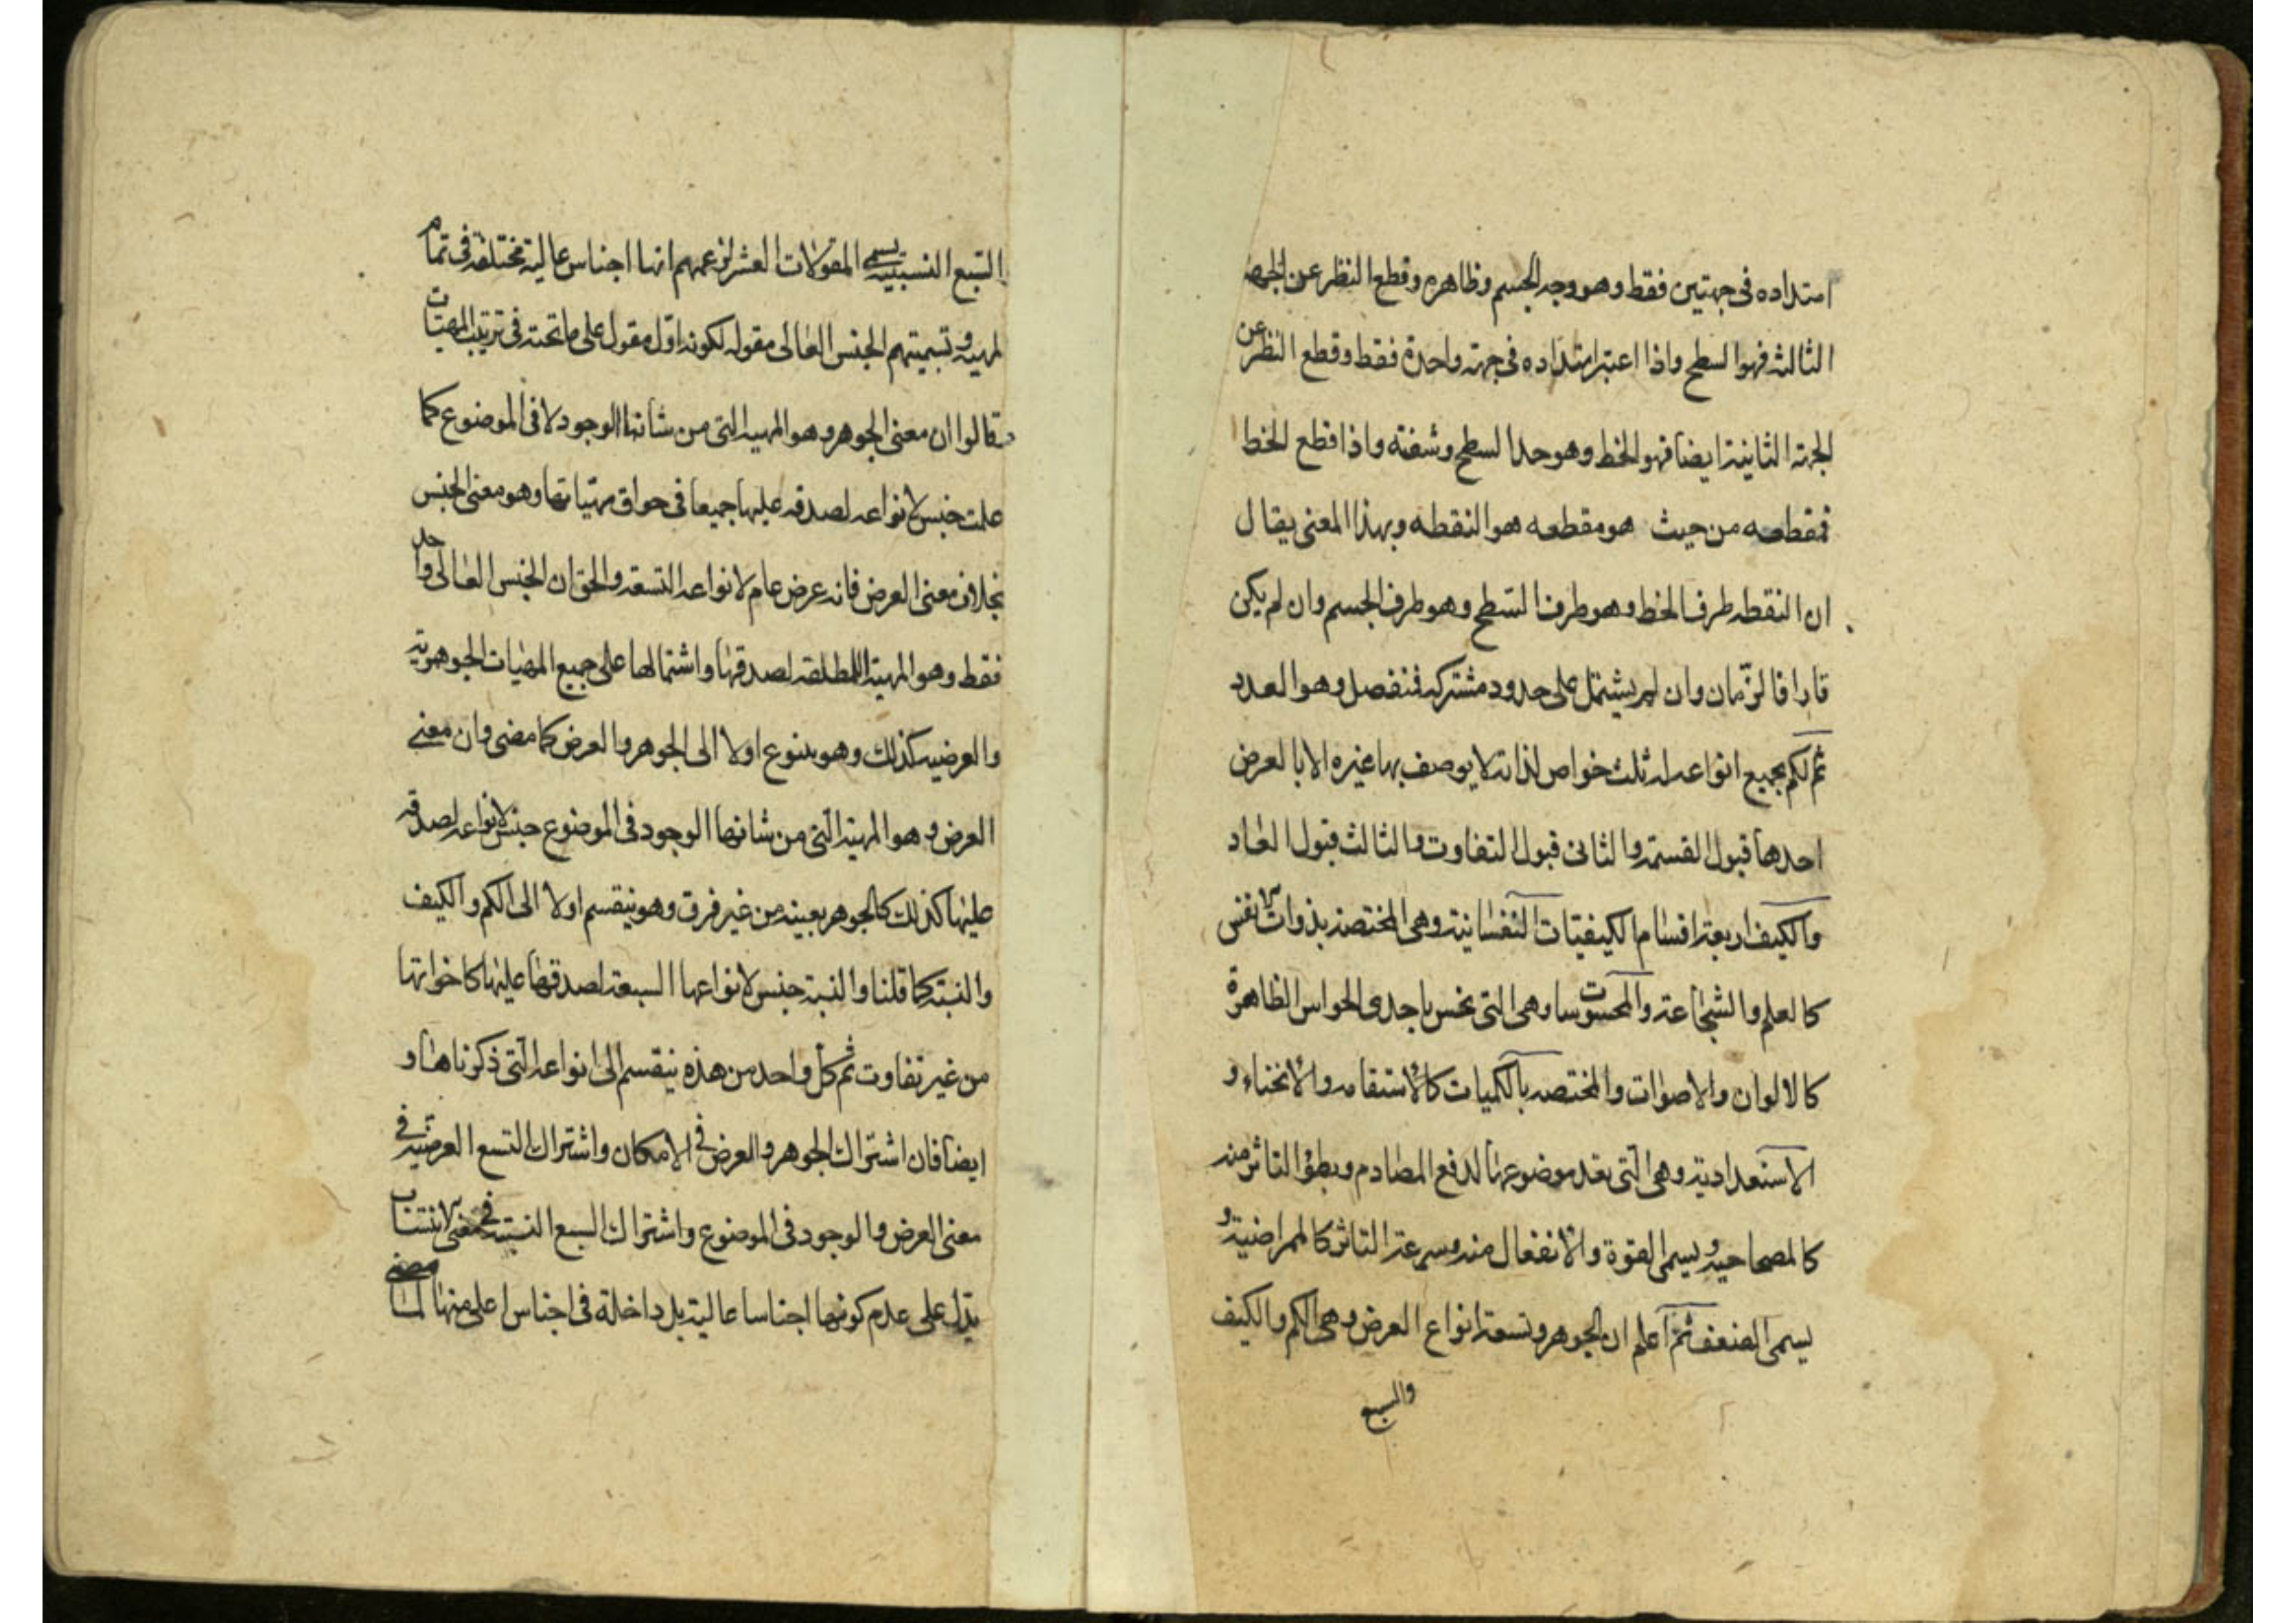 امتداده فى جهتين فقط وهو وجه الجسم وظاهره وقطع النظر عن الجهة
الثالثه فهو السطح واذا اعتبر امتداده فى جهة واحدة فقط وقطع النظر عن
الجهة الثانية ايضا فهو الخط وهو حد السطح وشفته واذا قطع الخط
فمقطعه من حيث هو مقطعه هو النقطه وبهذا المعنى يقال
ان النقطه طرف الخط وهو طرف السطح وهو طرف الجسم وان لم يكن
قارا فالزمان وان لم يشتمل على حدود مشتركه فمنفصل وهو العدد
ثم لكم بجميع انواعه له ثلث خواص لذاته لا يوصف بها غيره الا بالعرض
احدها قبول القسمة والثانى قبول التفاوت والثالث قبول العاد
والكيف اربعة اقسام الكيفيات النفسانية وهى المختصة بذوات الانفس
كالعلم والشجاعة والمحسوسات وهى التى تحس باحدى الحواس الظاهرة
كالالوان والاصوات والمختصه بالكميات كالاستقامه والانحناء و
الاستعدادية وهى التى بعد موضوعها لدفع المصادم وبطؤ التاثر منه
كالمصحاحيه ويسمى القوة والانفعال منه وسرعة التاثر كالممراضية و
يسمى الضعف ثم اعلم ان الجوهر وتسعة انواع العرض وهى الكم والكيف
والسبع
السبع النسبيه يسمى المقولات العشر لزعمهم انها اجناس عالية مختلفة فى تمام
المهيه وتسميتهم الجنس العالى مقوله لكونه اول مقول على ما تحته فى ترتيب المهيات
فقالوا ان معنى الجوهر وهو المهية التى من شانها الوجود لا فى الموضوع كما
علمت جنس لانواعه لصدقه عليها جميعا فى حواق مهياتها وهو معنى الجنس
بخلاف معنى العرض فانه عرض عام لانواعه التسعة والحق ان الجنس العالى واحد
فقط وهو المهية المطلقه لصدقها واشتمالها على جميع المهيات الجوهرية
والعرضيه كذلك وهو يتنوع اولا الى الجوهر والعرض كما مضى وان معنى
العرض وهو المهية التى من شانها الوجود فى الموضوع جنس لانواعه لصدقه
عليها كذلك كالجوهر بعينه من غير فرق وهو ينقسم اولا الى الكم والكيف
والنسبة كما قلنا والنسبة جنس لانواعها السبعة لصدقها عليها كاخواتها
من غير تفاوت ثم كل واحد من هذه ينقسم الى انواعه التى ذكرناها و
ايضا فان اشتراك الجوهر والعرض فى الامكان واشتراك التسع العرضيه فى
معنى العرض والوجود فى الموضوع واشتراك السبع النسبية فى معنى الانتساب
يدل على عدم كونها اجناسا عالية بل داخلة فى اجناس اعلى منها لما مضى